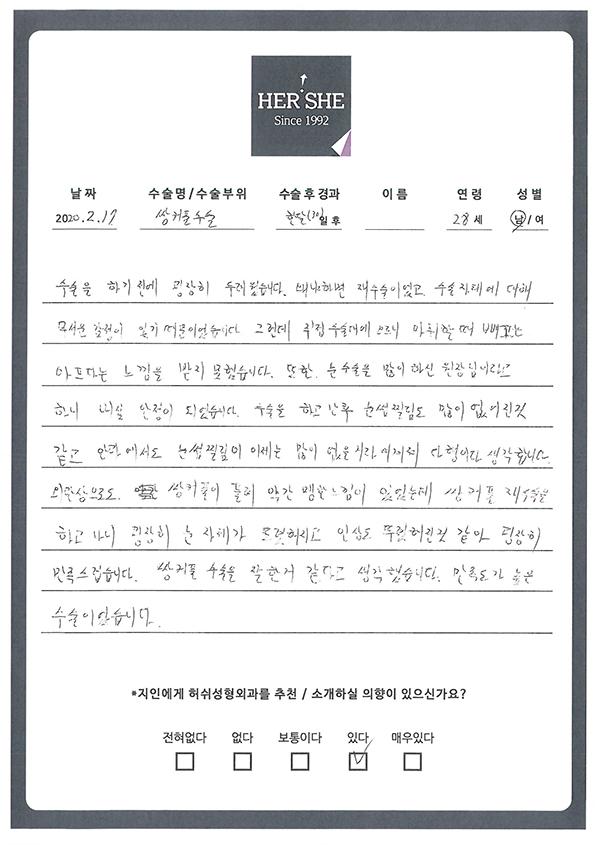 HER SHE
Since 1992
날 짜 수술명/수술부위 수술 후 경과 이 름 연 령 성 별
2020.2.17 쌍커풀수술 한달(30)일 후 28 세 남/여
수술을 하기 전에 굉장히 두려웠습니다. 왜냐하면 재수술이었고 수술자체에 대해
무서운 감정이 있기 때문이었습니다. 그런데 직접 수술대에 오르니 마취할 때 빼고는
아프다는 느낌을 받지 못했습니다. 또한, 눈수술을 많이 하신 원장님이라고
하니 안정이 되었습니다. 수술을 하고 난 후 눈썹찔림도 많이 없어진것
같고 안과에서도 눈썹찔림이 이제는 많이 없을시라 다행이다 생각합니다.
외관상으로도, 쌍커풀이 풀려 약간 맹한느낌이 있었는데 쌍커풀 재수술을
하고 나니 굉장히 눈 자체가 또렷해지고 인상도 뚜렷해진것 같아 굉장히
만족스럽습니다. 쌍커풀 수술을 잘한거 같다고 생각했습니다. 만족도가 높은
수술이었습니다.
*지인에게 허쉬성형외과를 추천 / 소개하실 의향이 있으신가요?
전혀없다 없다 보통이다 있다 매우있다